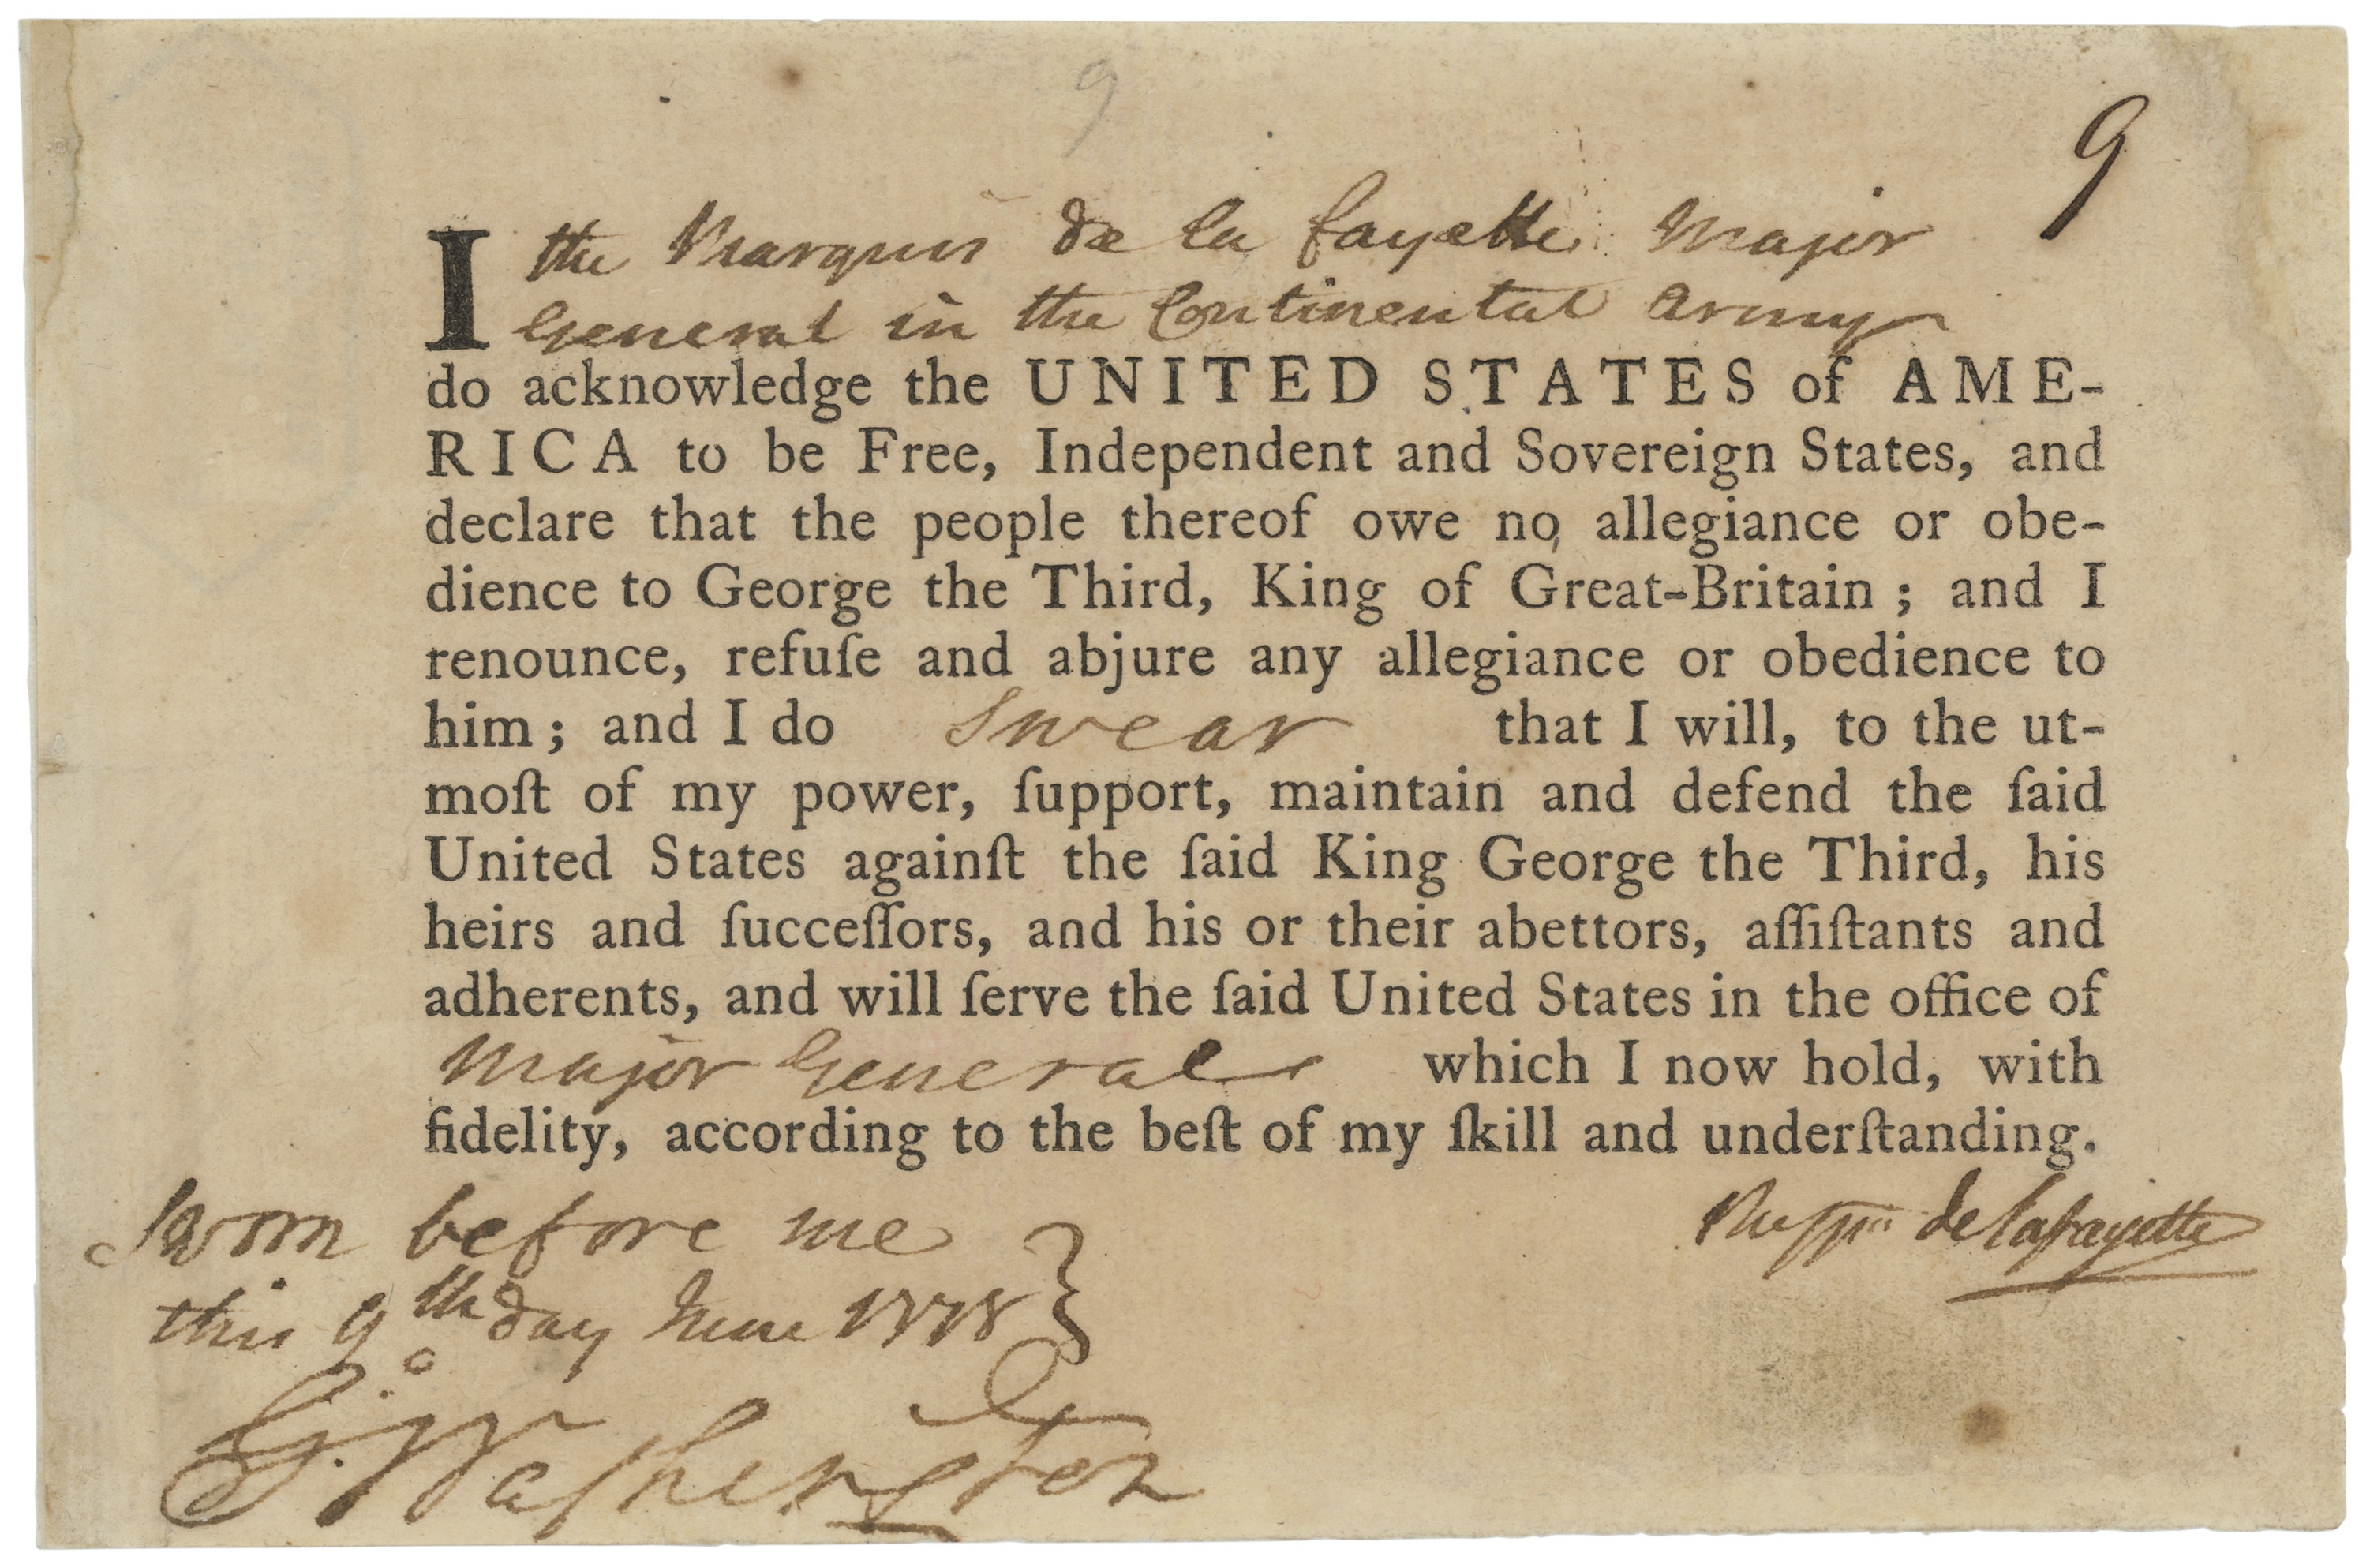 9
9
I the Marquis de la fayette Major
General in the Continental Army
do acknowledge the UNITED STATES of AME-
RICA to be Free, Independent and Sovereign States, and
declare that the people thereof owe no allegiance or obe-
dience to George the Third, King of Great-Britain ; and I
renounce, refuſe and abjure any allegiance or obedience to
him ; and I do Swear that I will, to the ut-
moſt of my power, ſupport, maintain and defend the ſaid
United States againſt the ſaid King George the Third, his
heirs and ſucceſſors, and his or their abettors, aſſiſtants and
adherents, and will ſerve the ſaid United States in the office of
Major General which I now hold, with
fidelity, according to the beſt of my ſkill and underſtanding.
Sworn before me
this 9th day June 1778
Go Washington
de Lafayette